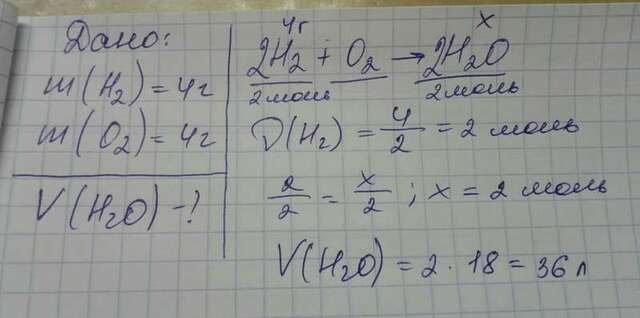 Дано:
m(H₂) = 4г
m(O₂) = 4г
V(H₂O) -?
4г x
2H₂ + O₂ → 2H₂O
2моль 2моль
ν(H₂) = 4/2 = 2 моль
2/2 = x/2 ; x = 2 моль
V(H₂O) = 2 · 18 = 36 л